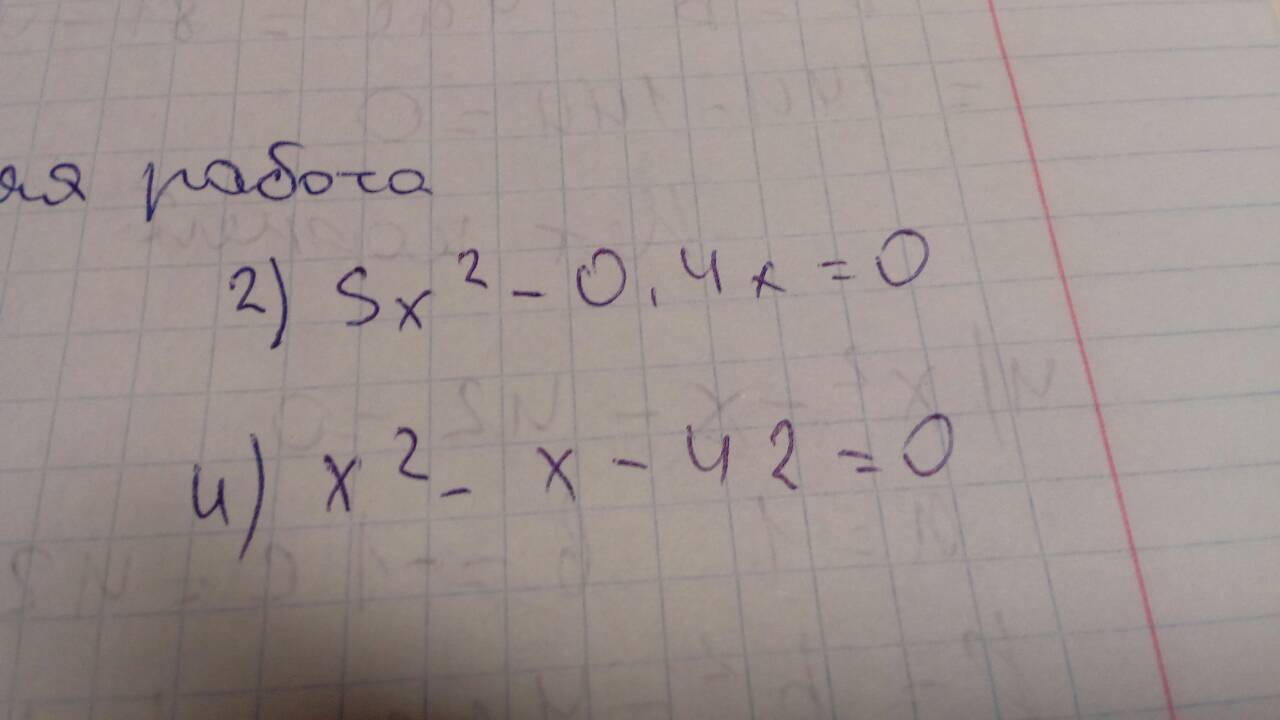 работа
2) 5x² - 0,4x = 0
4) x² - x - 42 = 0